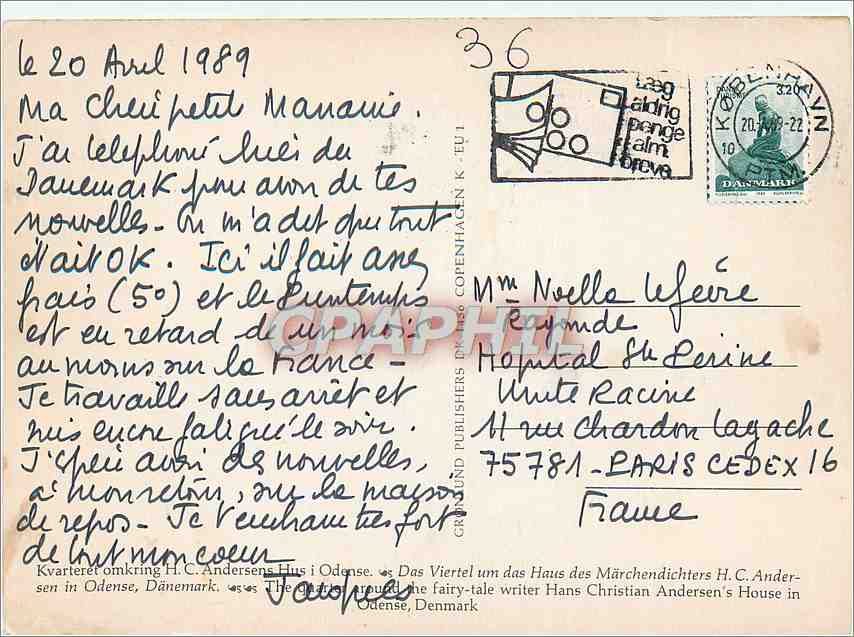 36
le 20 Avril 1989
Ma Chérie petite Mamamie.
J'ai telephoné hier du
Danemark pour avoir de tes
nouvelles - On m'a dit que tout
était OK. Ici il fait assez
frais (5°) et le Printemps
est en retard de un mois
au moins sur la France -
Je travaille sans arrêt et
suis encore fatigué le soir.
J'espère avoir des nouvelles,
à mon retour, sur la maison
de repos - Je t'embrasse très fort
de tout mon coeur
Jacques
Læg
aldrig
penge
i alm.
breve.
KØBENHAVN
PTM
3.20
DANMARK
GRØNLUND PUBLISHERS DK COPENHAGEN K - EU 1
Mme Noella Lefèvre
Hopital Ste Perine
Unite Racine
11 rue Chardon Lagache
75781 - PARIS CEDEX 16
France
GRAPHIL
Kvarteret omkring H. C. Andersens Hus i Odense. Das Viertel um das Haus des Märchendichters H. C. Ander-
sen in Odense, Dänemark. The quarter around the fairy-tale writer Hans Christian Andersen's House in
Odense, Denmark